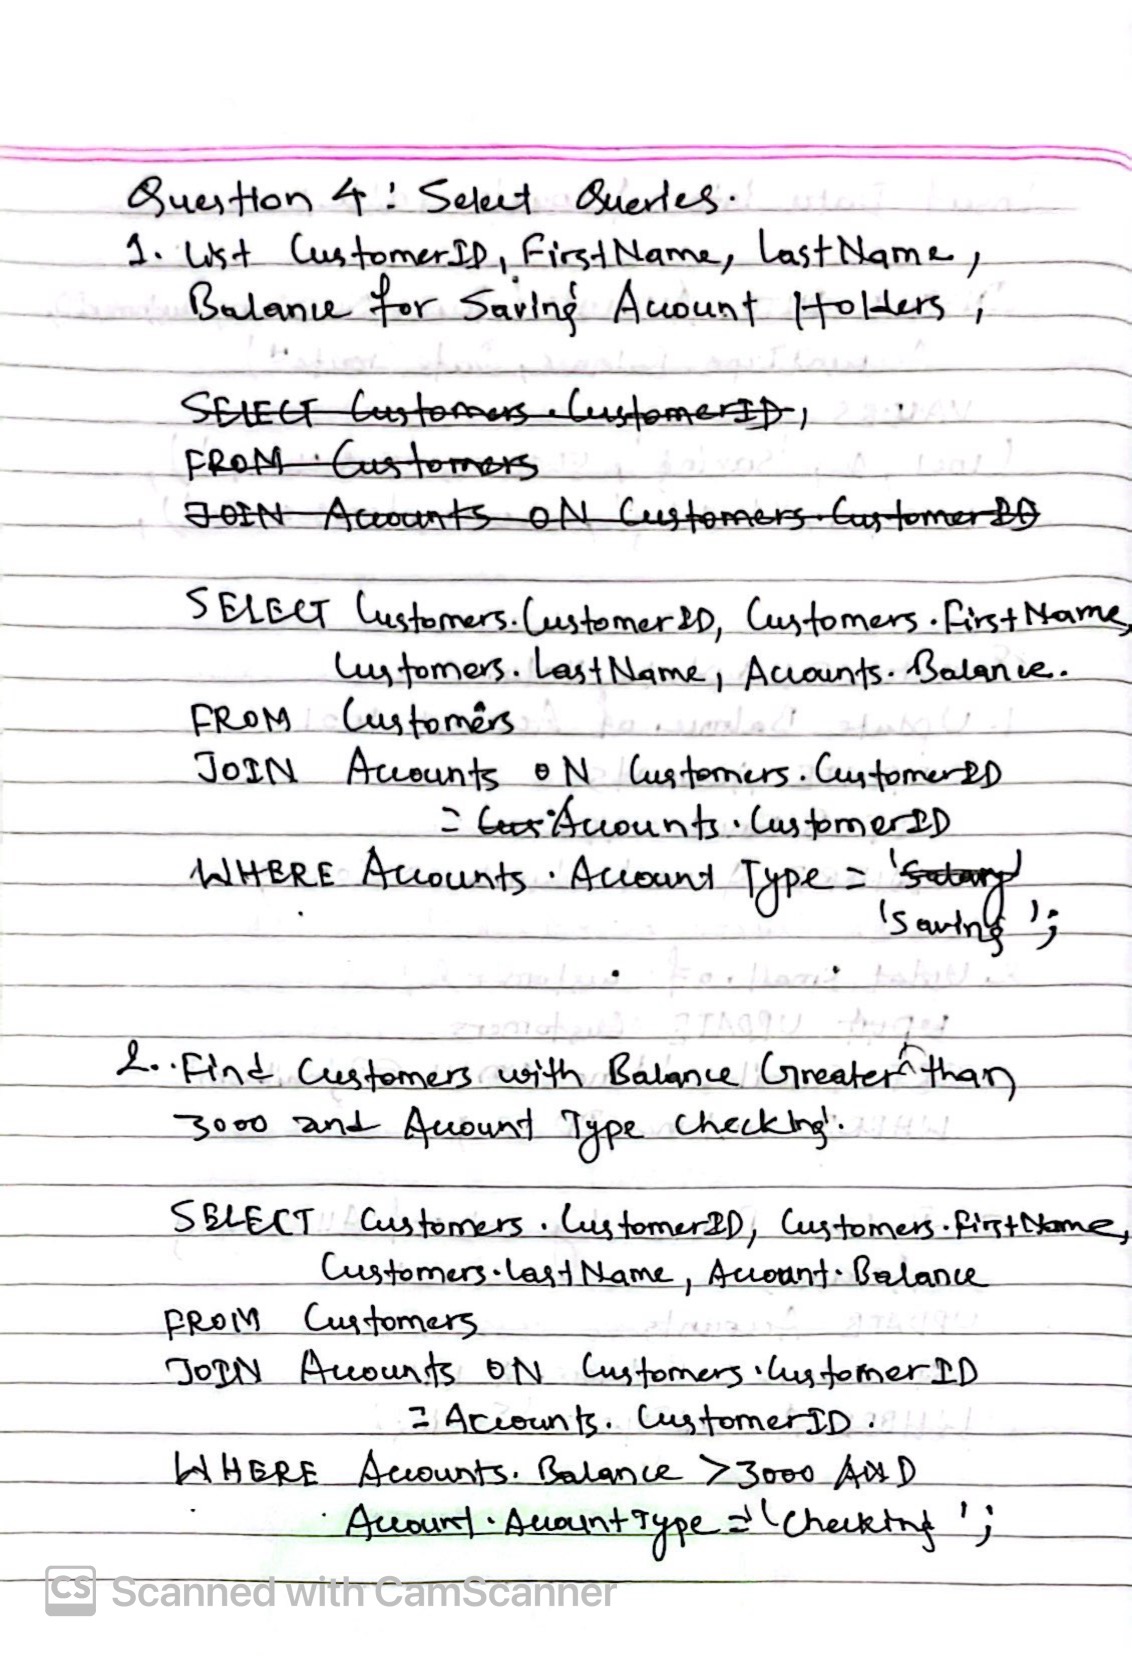 Question 4: Select Queries.
1. List CustomerID, FirstName, LastName,
Balance for Saving Account Holders;
SELECT Customers.CustomerID,
FROM Customers
JOIN Accounts ON Customers.CustomerID
SELECT Customers.CustomerID, Customers.FirstName,
Customers.LastName, Accounts.Balance.
FROM Customers
JOIN Accounts ON Customers.CustomerID
= Cus Accounts.CustomerID
WHERE Accounts.Account Type = 'Salary'
'Saving';
2. Find Customers with Balance Greater than
3000 and Account Type Checking.
SELECT Customers.CustomerID, Customers.FirstName,
Customers.LastName, Account.Balance
FROM Customers
JOIN Accounts ON Customers.CustomerID
= Accounts.CustomerID.
WHERE Accounts.Balance >3000 AND
Account.AccountType = 'Checking';
CS Scanned with CamScanner